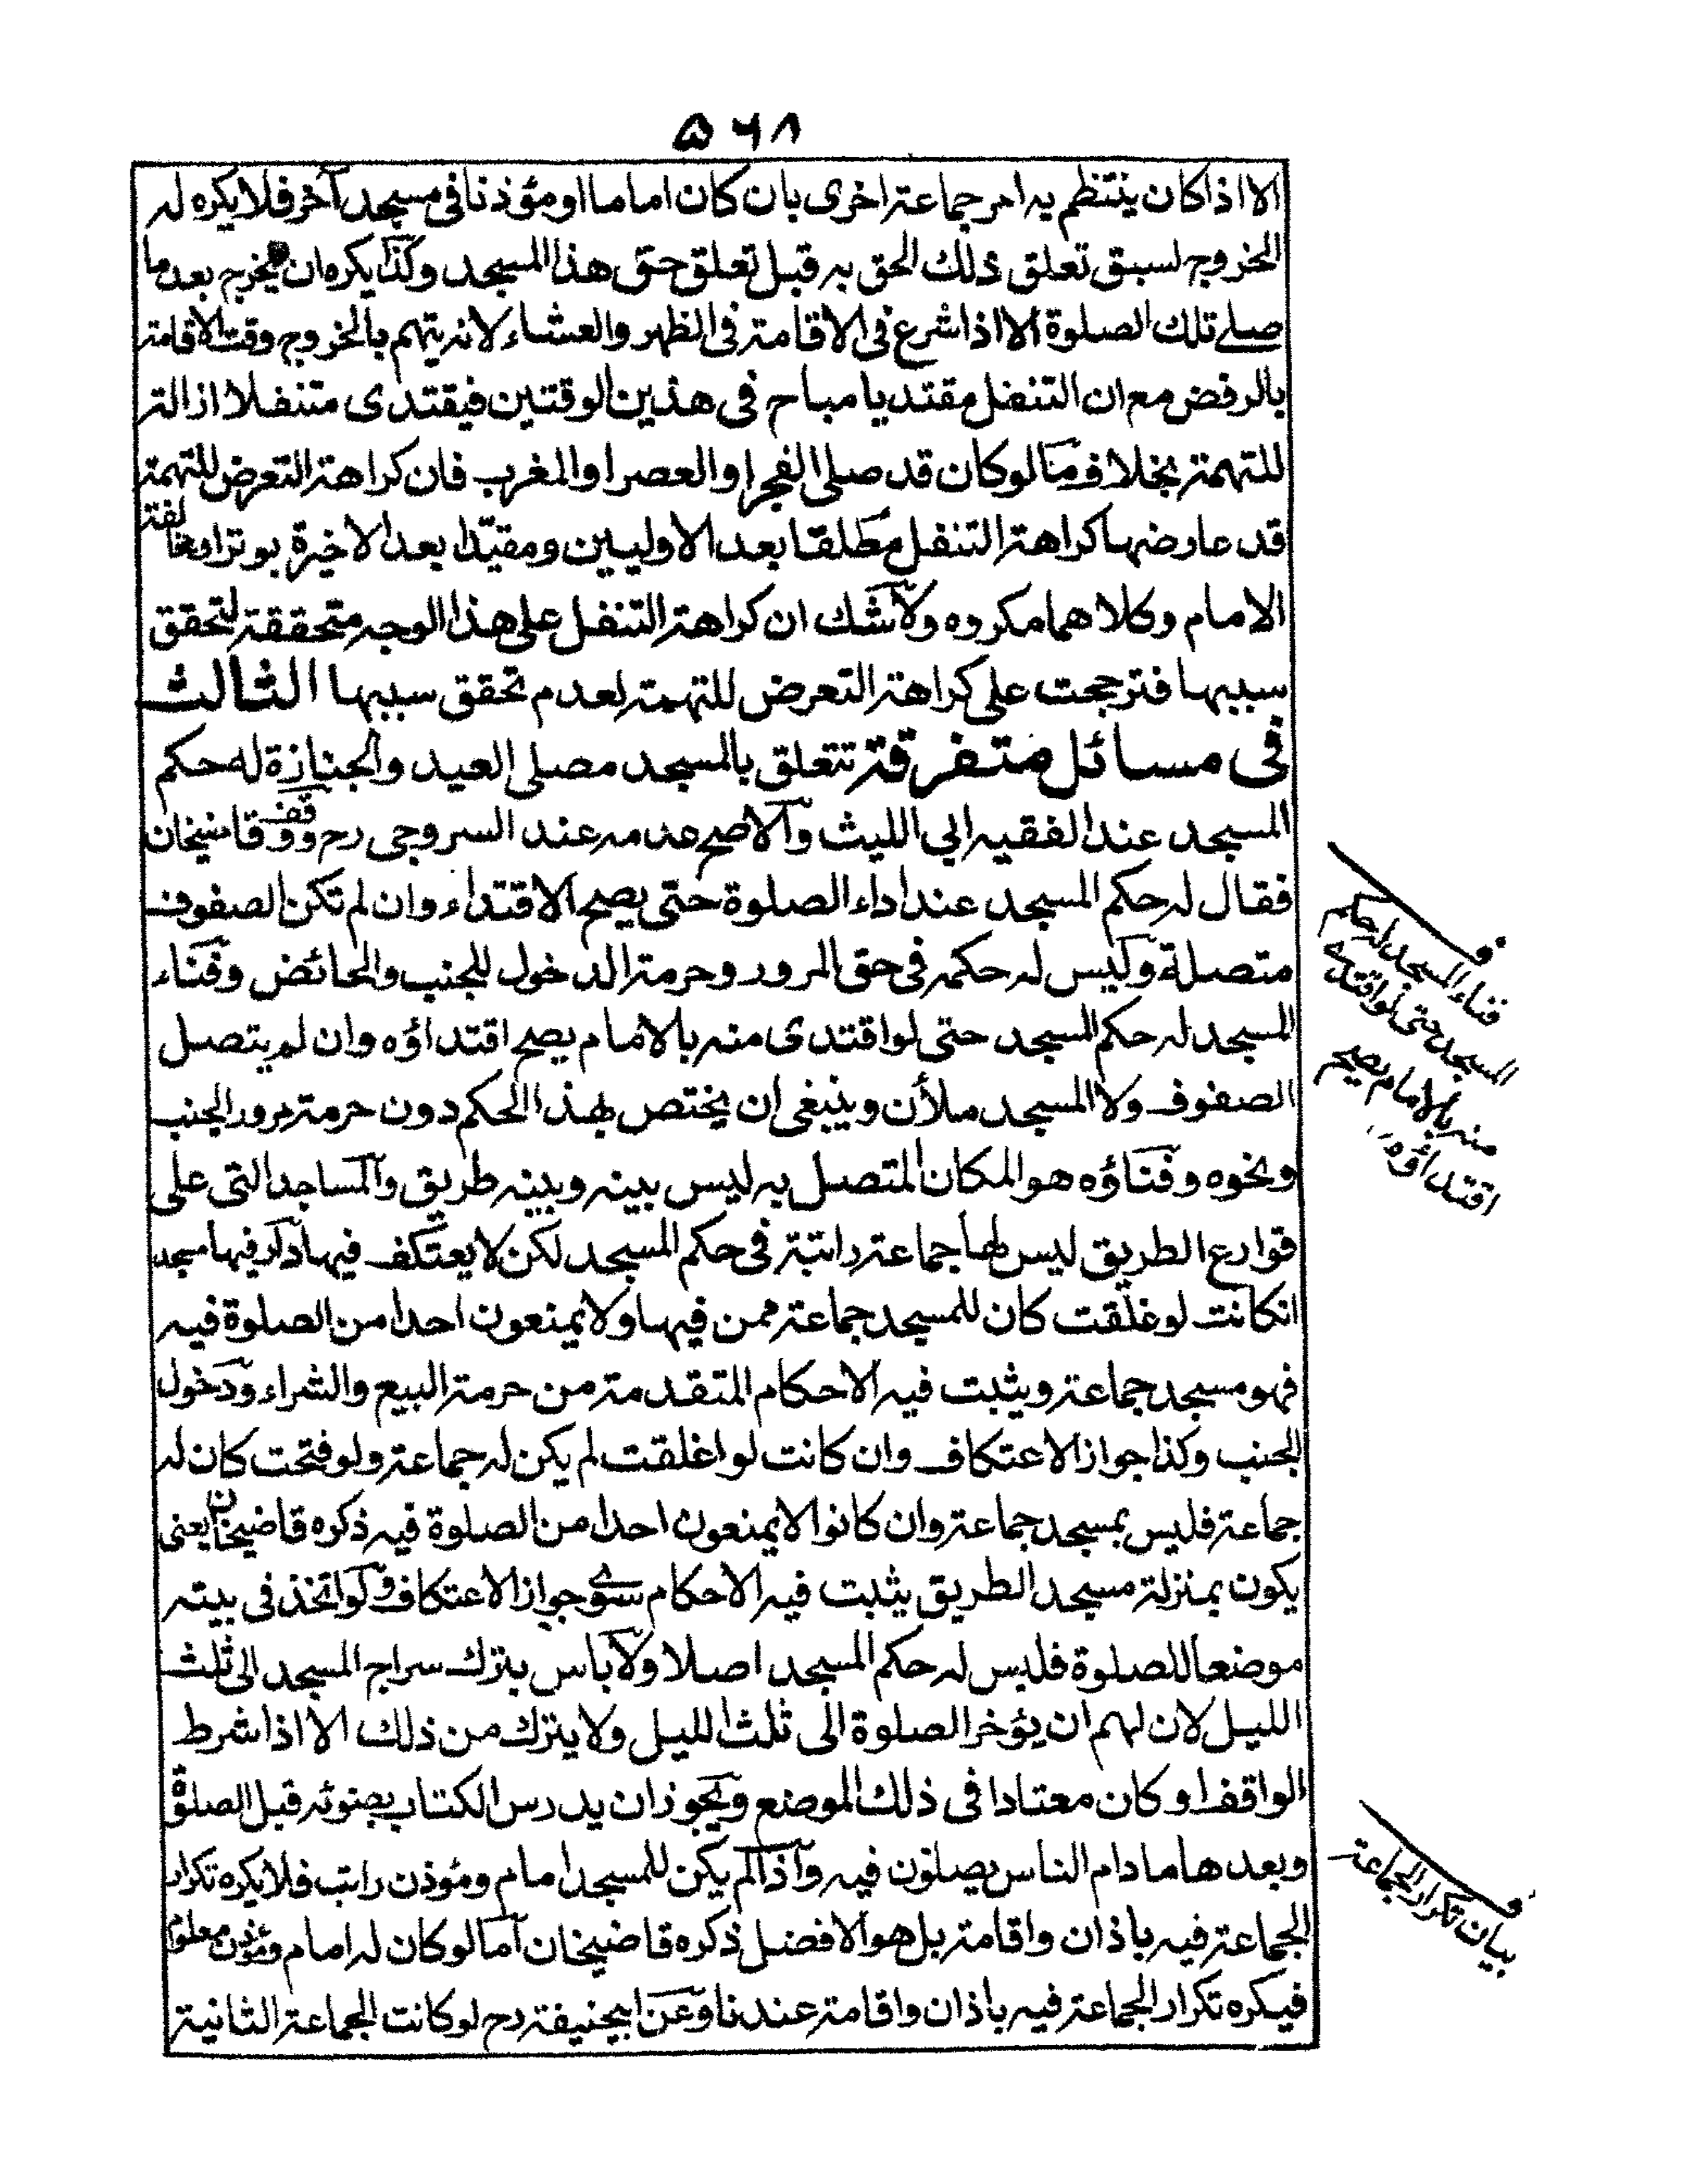 ۵۶۸
الا اذا كان ينتظم به امر جماعة اخرى بان كان اماما او مؤذنا فى مسجد آخر فلا يكره له
الخروج لسبق تعلق ذلك الحق به قبل تعلق حق هذا المسجد وكذا يكره ان يخرج بعد ما
صلے تلك الصلوة الا اذا شرع فى الاقامة فى الظهر والعشاء لانه يتهم بالخروج وقت الاقامة
بالرفض مع ان التنفل مقتديا مباح فى هذين الوقتين فيقتدى متنفلا ازالة
للتهمة بخلاف ما لو كان قد صلى الفجر او العصر او المغرب فان كراهة التعرض للتهمة
قد عارضها كراهة التنفل مطلقا بعد الاوليين ومقيدا بعد الاخيرة بوتر او مخالفة
الامام وكلاهما مكروه ولا شك ان كراهة التنفل على هذا الوجه متحققة لتحقق
سببها فترجحت على كراهة التعرض للتهمة لعدم تحقق سببها الثالث
فى مسائل متفرقة تتعلق بالمسجد مصلى العيد والجنازة له حكم
المسجد عند الفقيه ابي الليث والاصح عدمه عند السروجى رح ووفق قاضيخان
فقال له حكم المسجد عند اداء الصلوة حتى يصح الاقتداء وان لم تكن الصفوف
متصلة وليس له حكمه فى حق المرور وحرمة الدخول للجنب والحائض وفناء
المسجد له حكم المسجد حتى لو اقتدى منه بالامام يصح اقتداؤه وان لم يتصل
الصفوف ولا المسجد ملأن وينبغى ان يختص بهذا الحكم دون حرمة مرور الجنب
ونحوه وفناؤه هو المكان المتصل به ليس بينه وبينه طريق والمساجد التى على
قوارع الطريق ليس لها جماعة راتبة فى حكم المسجد لكن لا يعتكف فيها دار فيها مسجد
انكانت لو غلقت كان للمسجد جماعة ممن فيها ولا يمنعون احدا من الصلوة فيه
فهو مسجد جماعة ويثبت فيه الاحكام المتقدمة من حرمة البيع والشراء ودخول
الجنب وكذا جواز الاعتكاف وان كانت لو اغلقت لم يكن له جماعة ولو فتحت كان له
جماعة فليس بمسجد جماعة وان كانوا لا يمنعون احدا من الصلوة فيه ذكره قاضيخان يعنى
يكون بمنزلة مسجد الطريق يثبت فيه الاحكام سوے جواز الاعتكاف ولو اتخذ فى بيته
موضعا للصلوة فليس له حكم المسجد اصلا ولا باس بترك سراج المسجد الى ثلث
الليل لان لهم ان يؤخر الصلوة الى ثلث الليل ولا يترك من ذلك الا اذا شرط
الواقف او كان معتادا فى ذلك الموضع ويجوز ان يدرس الكتاب بضوئه قبل الصلوة
وبعدها ما دام الناس يصلون فيه واذا لم يكن للمسجد امام ومؤذن راتب فلا يكره تكرار
الجماعة فيه باذان واقامة بل هو الافضل ذكره قاضيخان اما لو كان له امام ومؤذن معلوم
فيكره تكرار الجماعة فيه باذان واقامة عندنا وعن ابيحنيفة رح لو كانت الجماعة الثانية
ف
فناء المسجد له حكم
المسجد حتى لو اقتدے
منه بالامام يصح
اقتداؤه
ف
بيان تكرار الجماعة